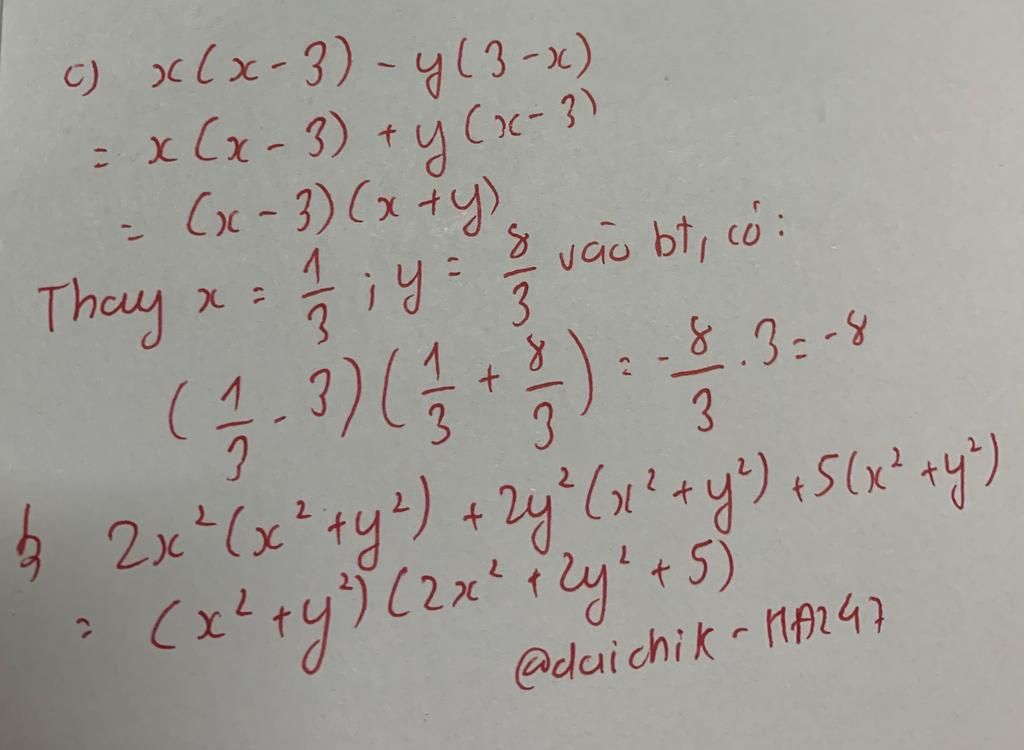 c) x(x-3) - y(3-x)
= x(x-3) + y(x-3)
= (x-3)(x+y)
Thay x = 1/3 ; y = 8/3 vào bt, có:
(1/3 - 3)(1/3 + 8/3) = -8/3 . 3 = -8
b) 2x²(x²+y²) + 2y²(x²+y²) + 5(x²+y²)
= (x²+y²)(2x²+2y²+5)
@daichik - HA247